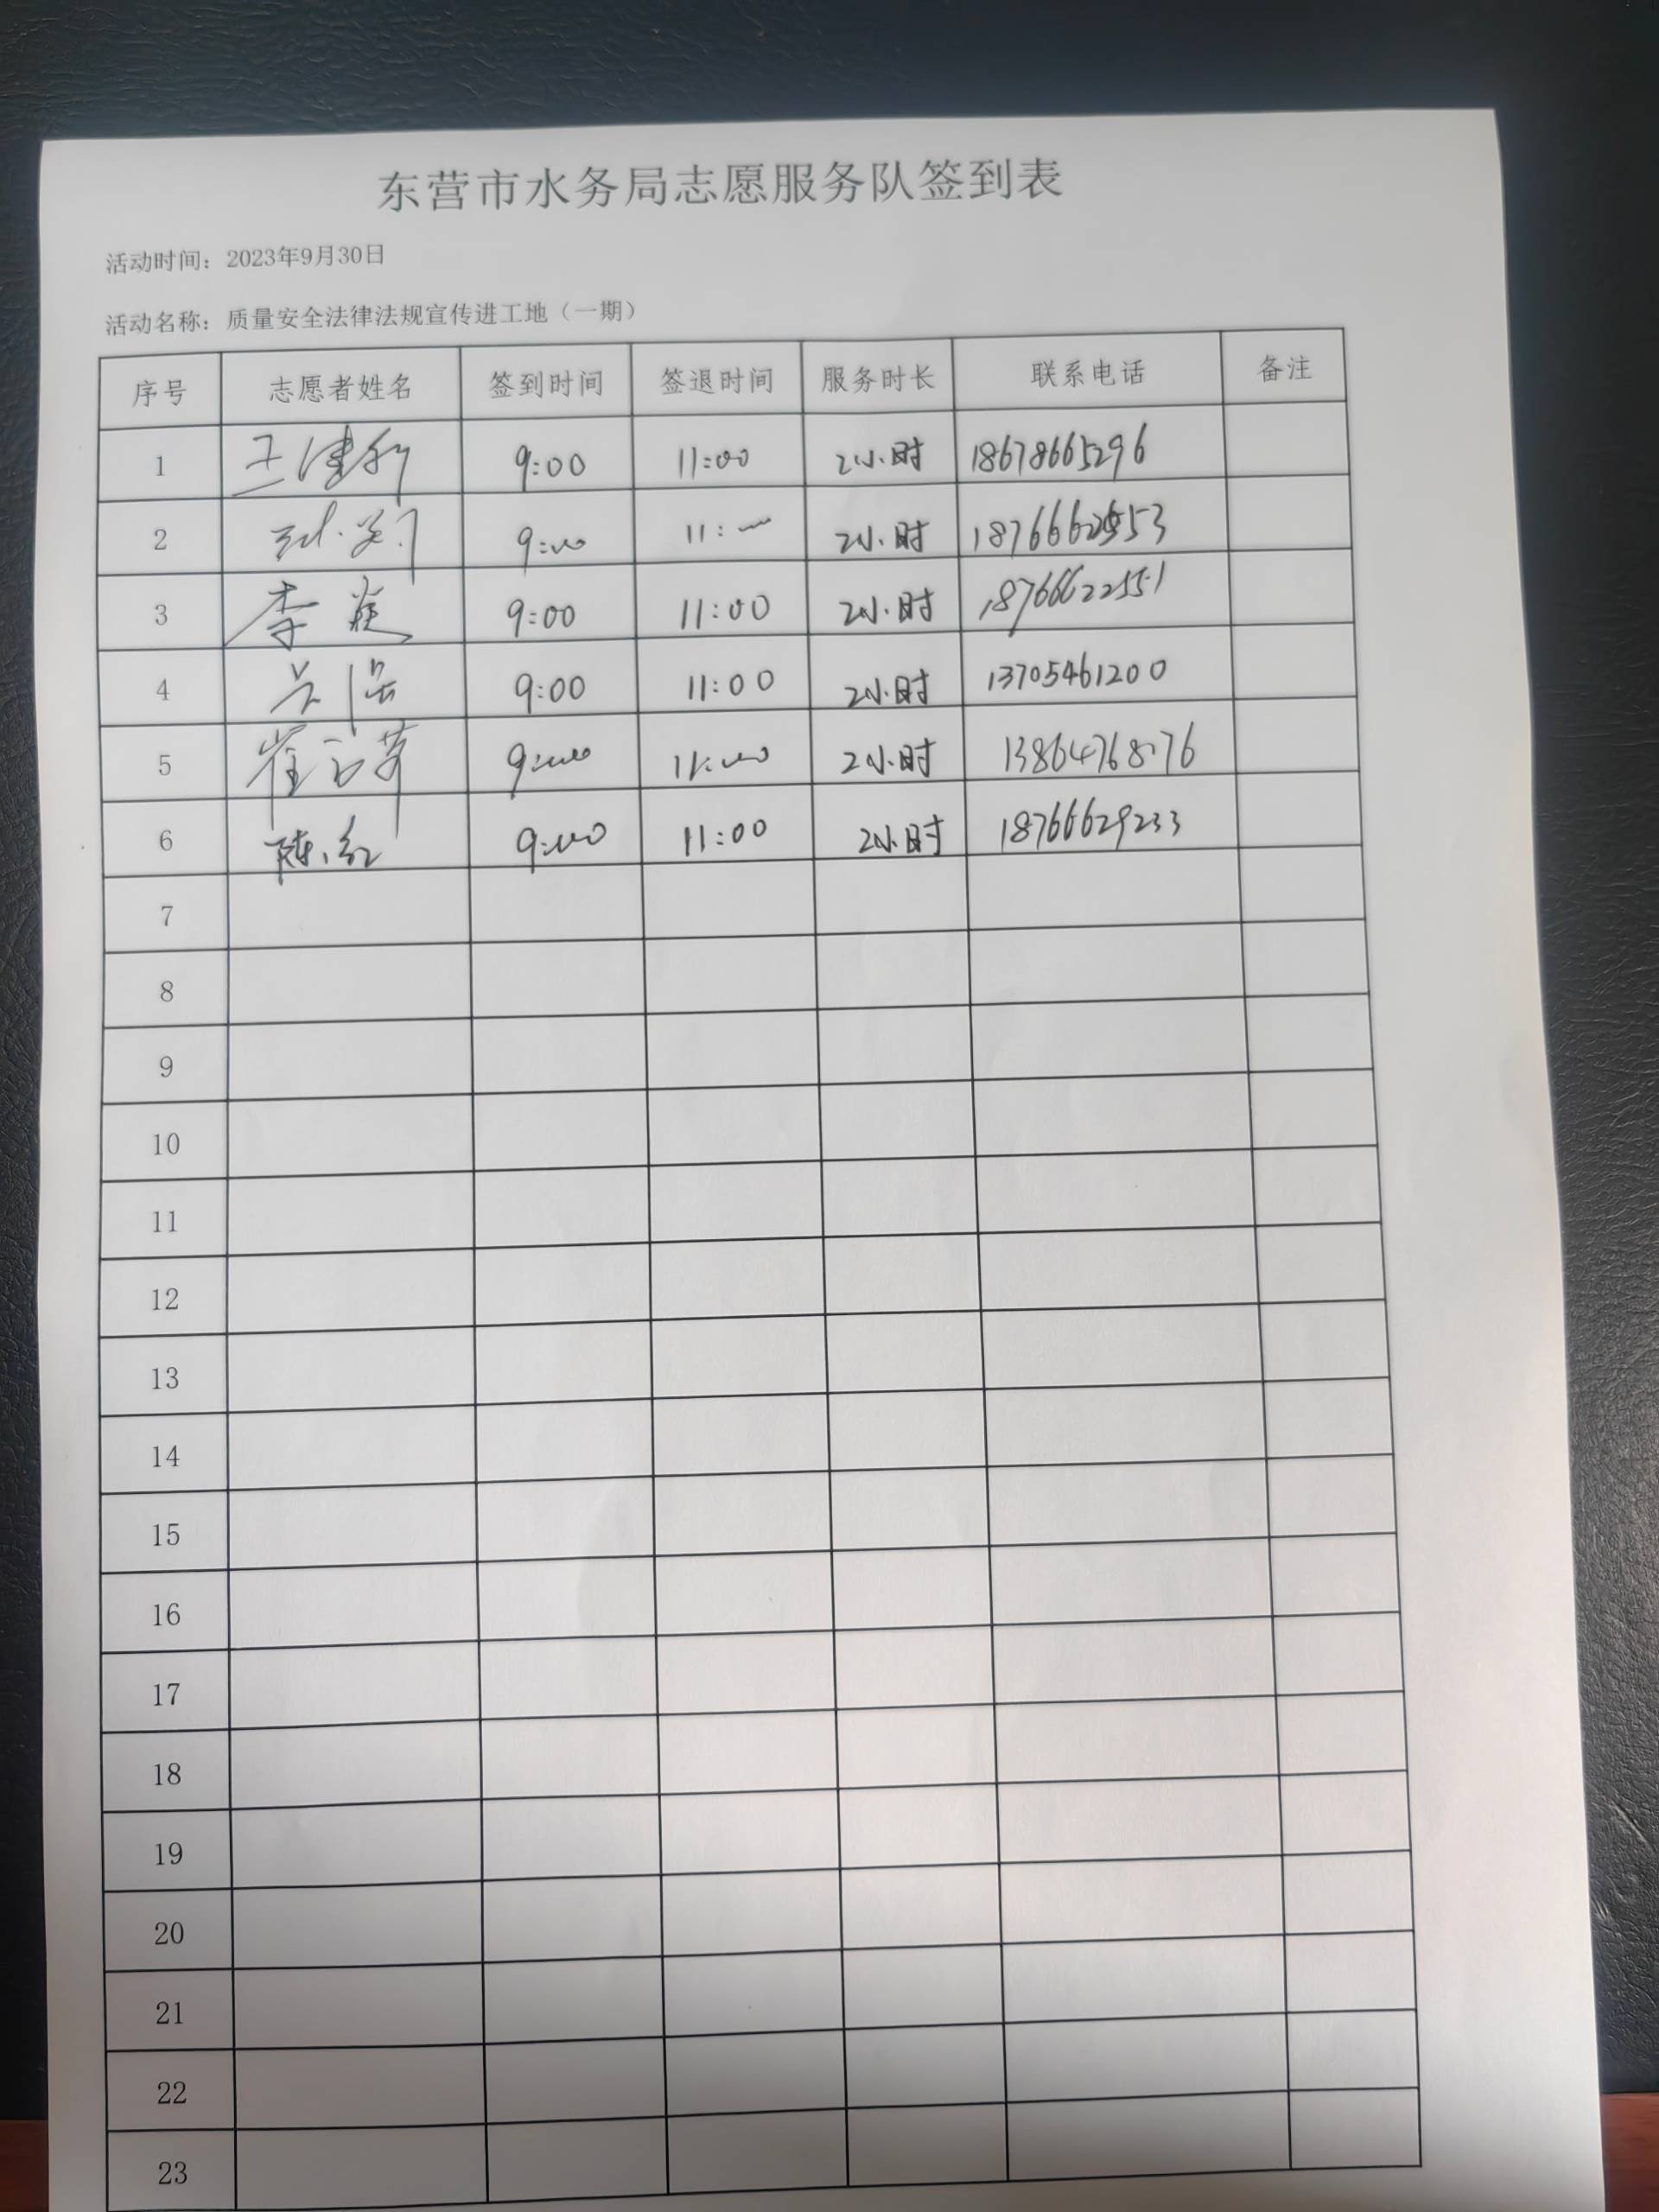 东营市水务局志愿服务队签到表
活动时间：2023年9月30日
活动名称：质量安全法律法规宣传进工地（一期）
序号 志愿者姓名 签到时间 签退时间 服务时长 联系电话 备注
1 9:00 11:00 2小时 18678665296
2 9:00 11: 2小时
3 李 9:00 11:00 2小时 18766622551
4 9:00 11:00 2小时 13705461200
5 崔 9:00 11:00 2小时
6 陈红 9:00 11:00 2小时 18766629233
7
8
9
10
11
12
13
14
15
16
17
18
19
20
21
22
23